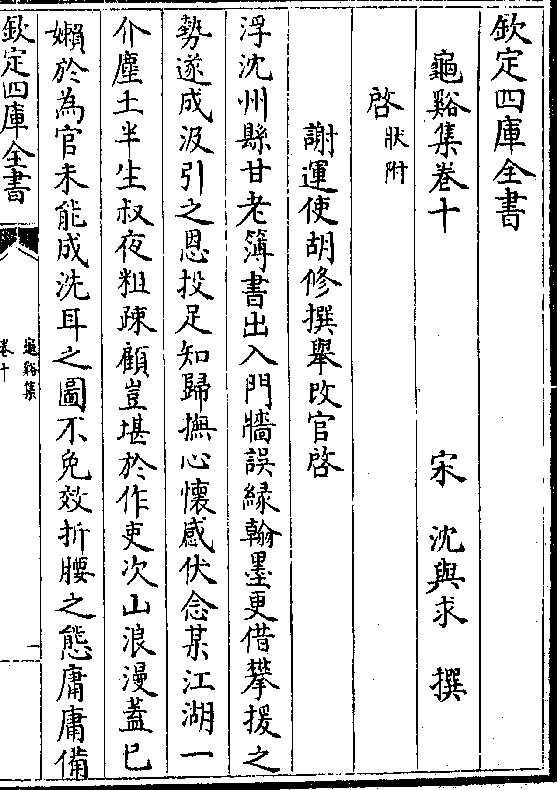 欽定四庫全書
龜谿集卷十
宋 沈與求 撰
啓狀附
謝運使胡修撰舉改官啓
浮沈州縣甘老簿書出入門牆誤緣翰墨更借攀援之
勢遂成汲引之恩投足知歸撫心懷感伏念某江湖一
介塵土半生叔夜粗疎顧豈堪於作吏次山浪漫蓋已
嬾於為官未能成洗耳之圖不免效折腰之態庸庸備
欽定四庫全書
龜谿集
卷十
一